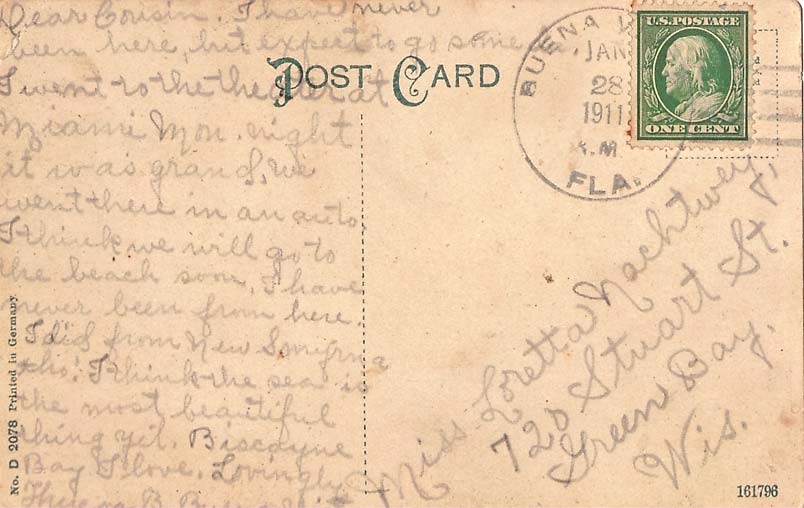 Dear Cousin. I have never
been here, but expect to go some
I went to the theater at
Miami Mon. night
it was grand, we
went there in an auto.
I think we will go to
the beach soon. I have
never been from here.
I did from New Smyrna
tho'. I think the sea is
the most beautiful
thing yet. Biscayne
Bay I love. Lovingly
B. Buena
POST CARD
BUENA
JAN
28
1911
A.M.
FLA.
U.S. POSTAGE
ONE CENT
Miss Loretta Nachtwey,
720 Stuart St.
Green Bay.
Wis.
No. D 2078 Printed in Germany
161796